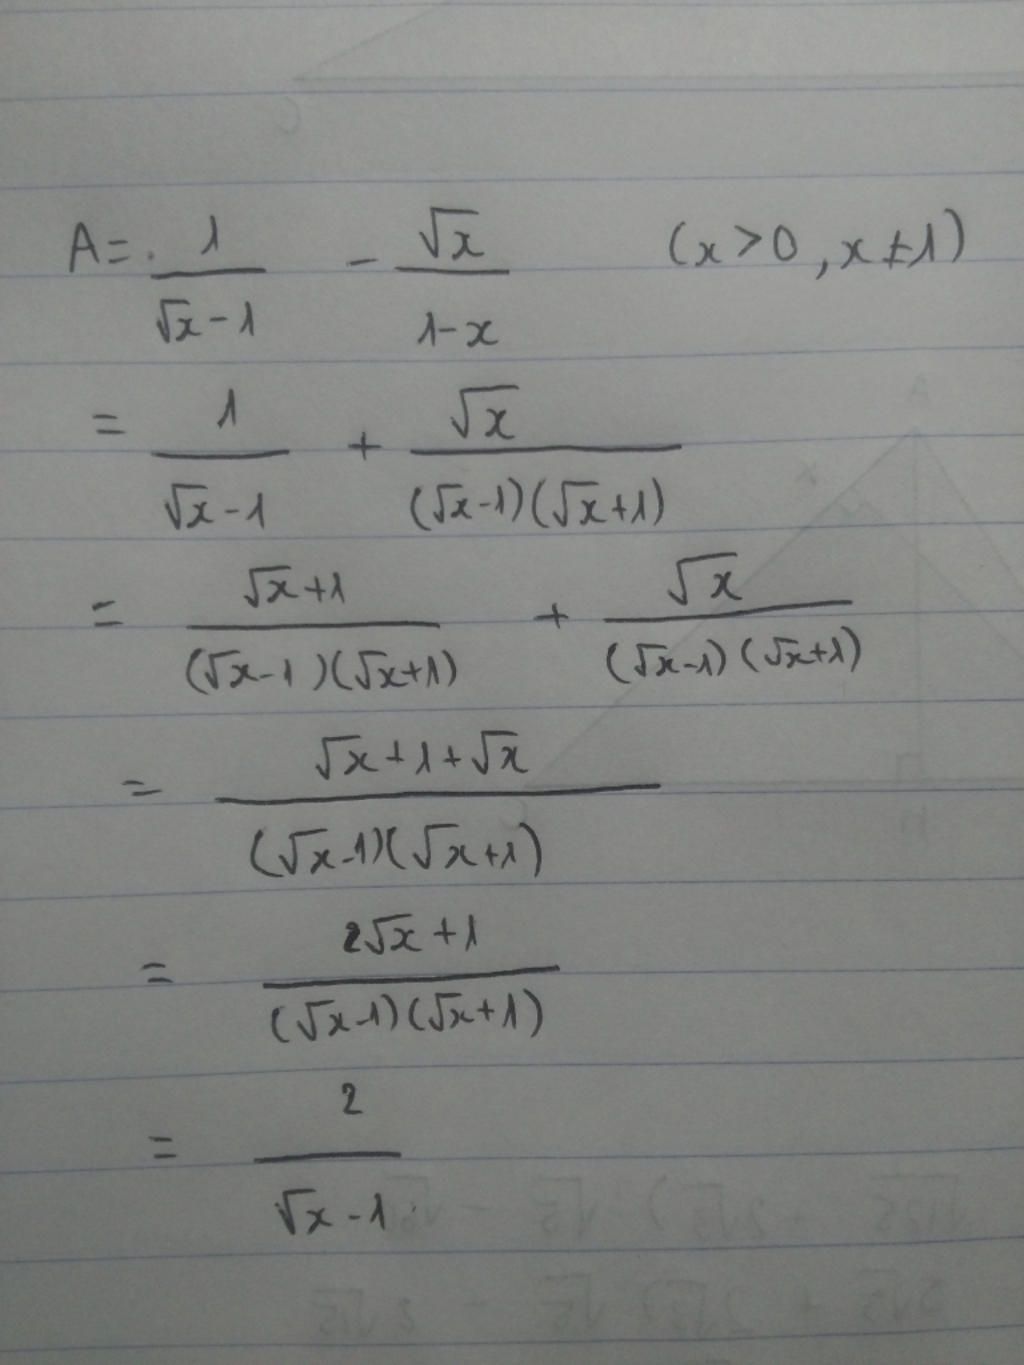 A = 1/(√x - 1) - √x/(1 - x) (x > 0, x ≠ 1)
= 1/(√x - 1) + √x/((√x - 1)(√x + 1))
= (√x + 1)/((√x - 1)(√x + 1)) + √x/((√x - 1)(√x + 1))
= (√x + 1 + √x)/((√x - 1)(√x + 1))
= (2√x + 1)/((√x - 1)(√x + 1))
= 2/(√x - 1)